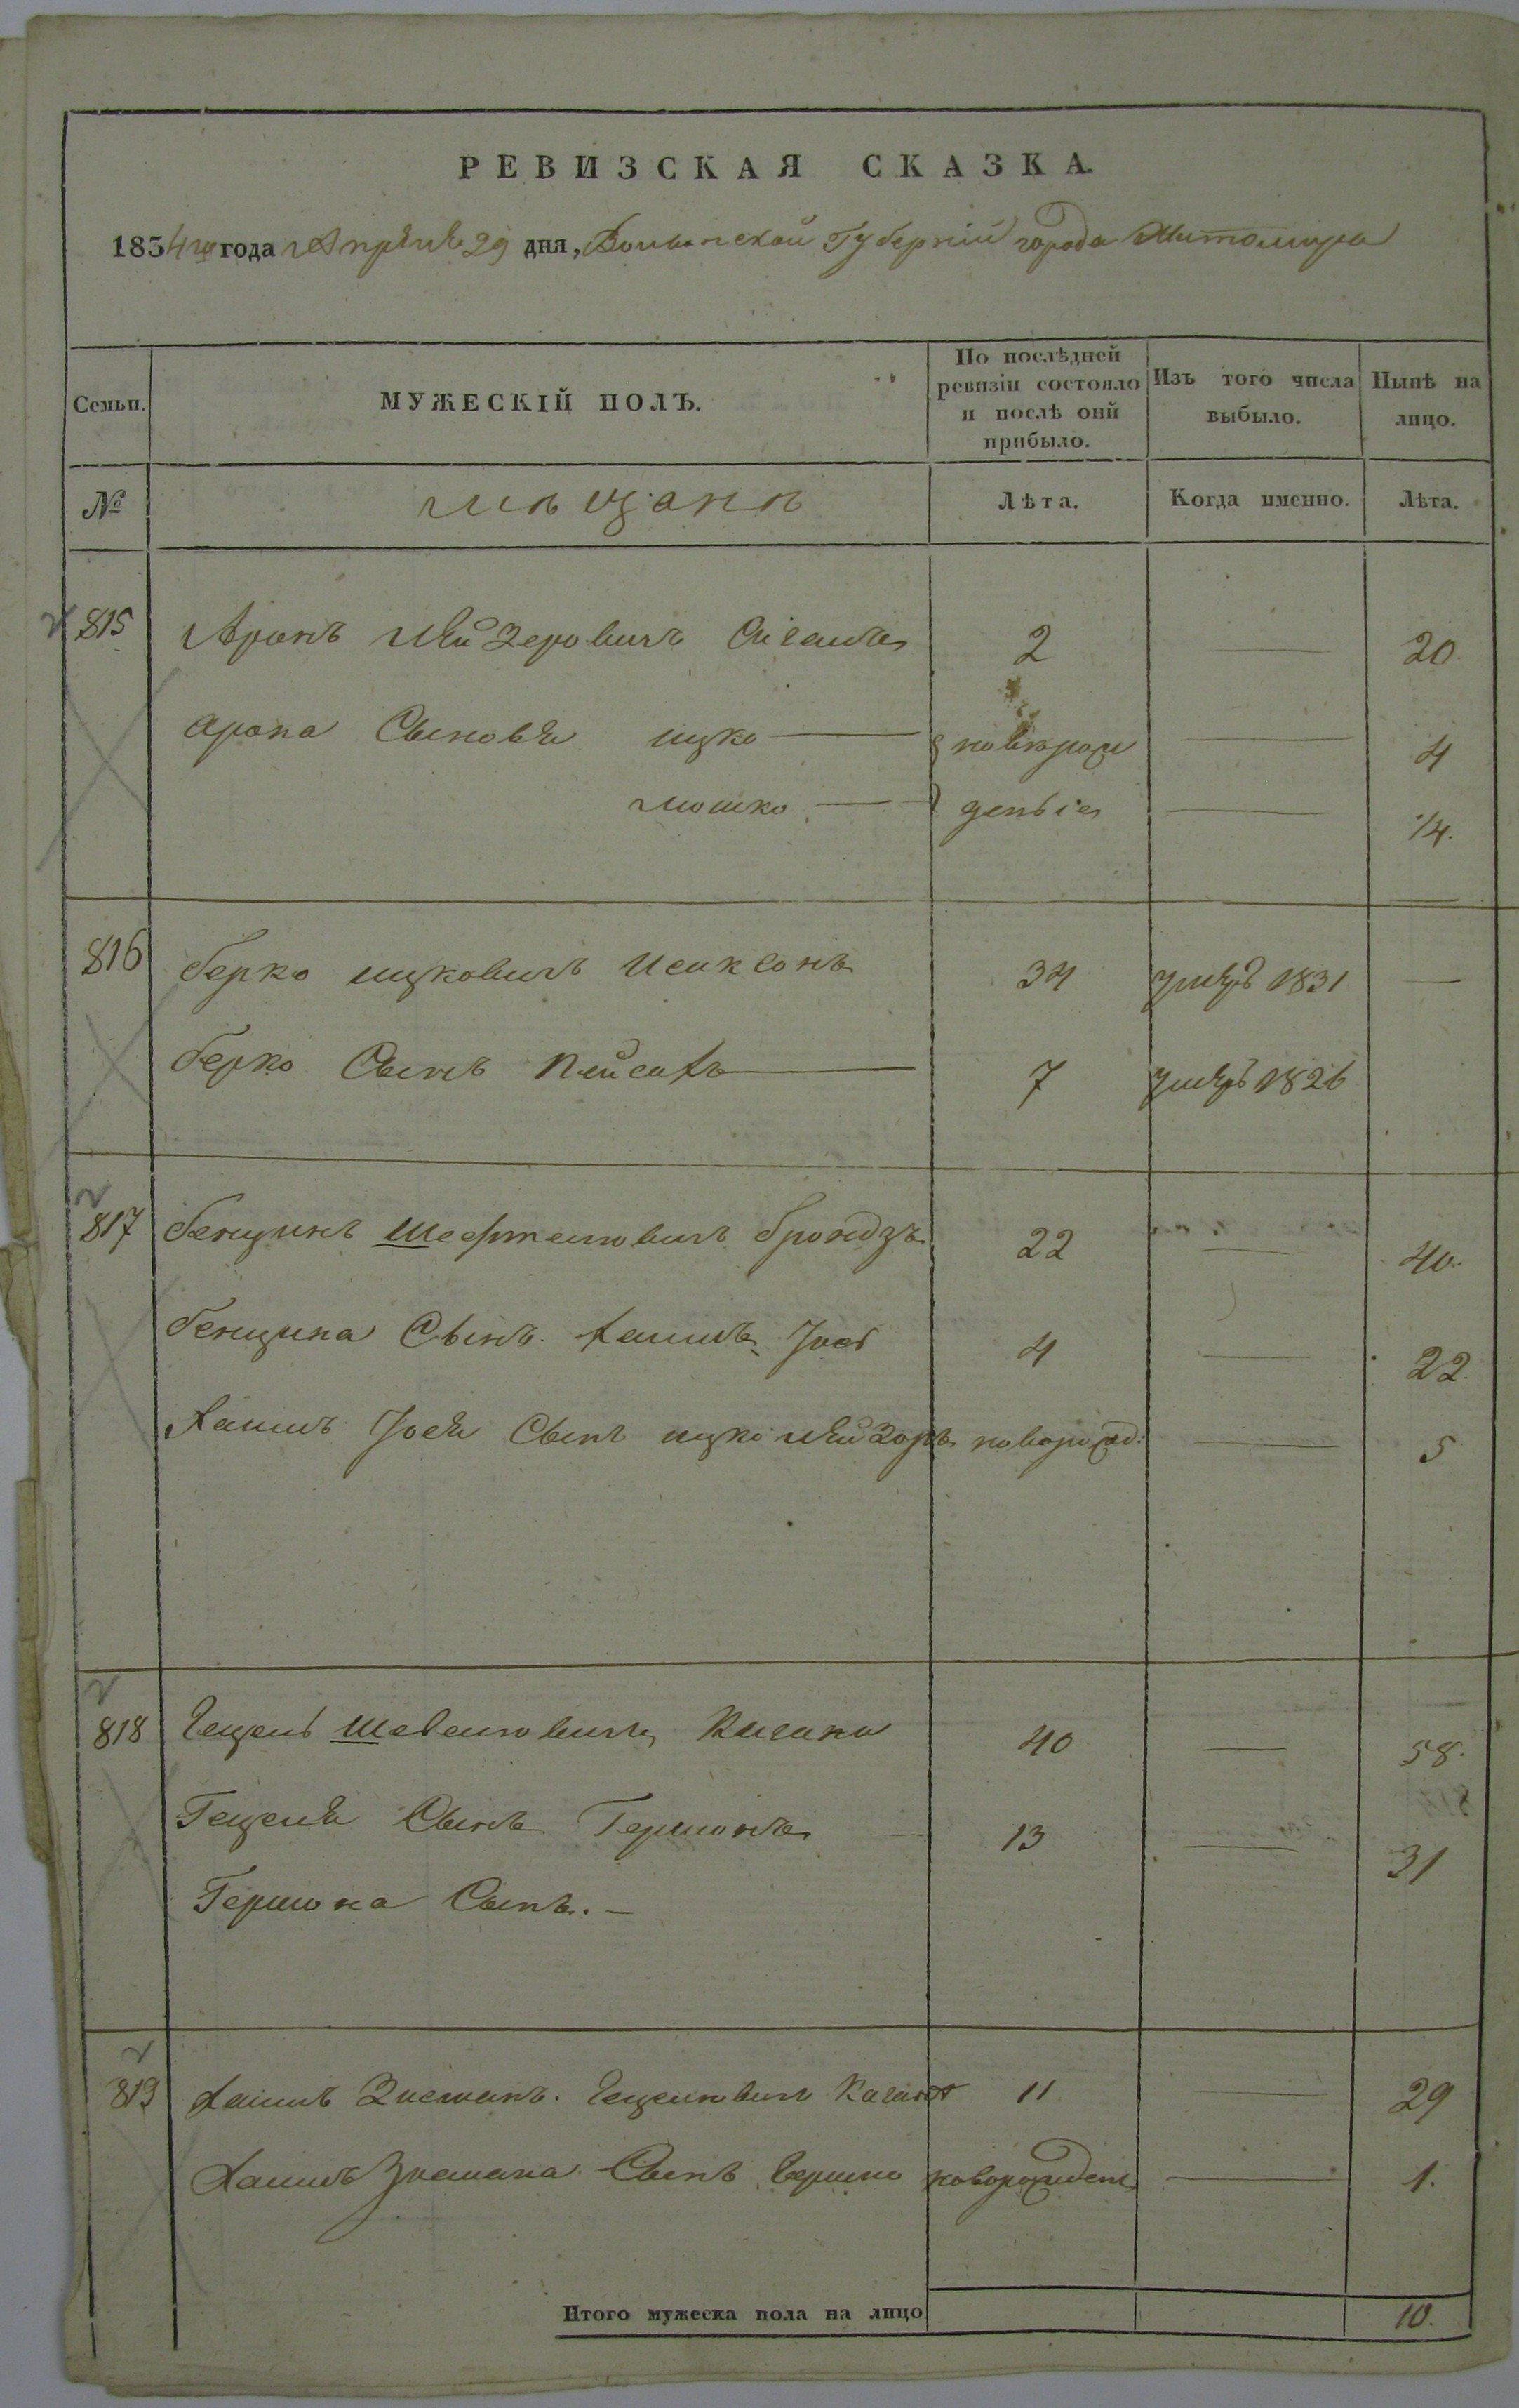 РЕВИЗСКАЯ СКАЗКА.
1834го года Апрѣля 29 дня, Волынской Губерніи города Житомира
Семьи.
МУЖЕСКІЙ ПОЛЪ.
По послѣдней ревизіи состояло и послѣ оній прибыло.
Изъ того числа выбыло.
Нынѣ на лицо.
№
мѣщане
Лѣта.
Когда именно.
Лѣта.
815 Аронъ Лейзеровичъ 2 — 20
Арона Сыновья ицко — новорож — 4
мошко — деніе — 1/4.
816 берко ицковичъ Исаксонъ 34 умеръ 1831 —
берко Сынъ Пейсахъ — 7 умеръ 1826
817 бенціонъ Шефтеловичъ 22 — 40.
бенціона Сынъ Хаимъ Іось 4 — 22.
Хаимъ Іося Сынъ ицко Лейзоръ новорожд: — 5
818 Гецель Шевеловичъ Кагана 40 — 58.
Гецеля Сынъ Гершонъ 13 — 31
Гершона Сынъ. —
819 Хаимъ Зисманъ. Гецеловичъ Каганъ 11 — 29
Хаимъ Зисмана Сынъ новорожден — 1.
Итого мужеска пола на лицо 10.